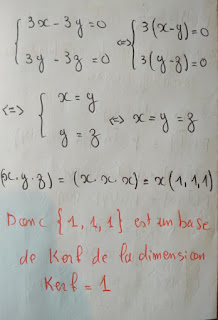 { 3x - 3y = 0 <=> { 3(x-y) = 0
3y - 3z = 0 3(y-z) = 0
<=> { x = y <=> x = y = z
y = z
(x.y.z) = (x.x.x) = x(1,1,1)
Donc {1,1,1} est un base
de Kerf de la dimension
Kerf = 1